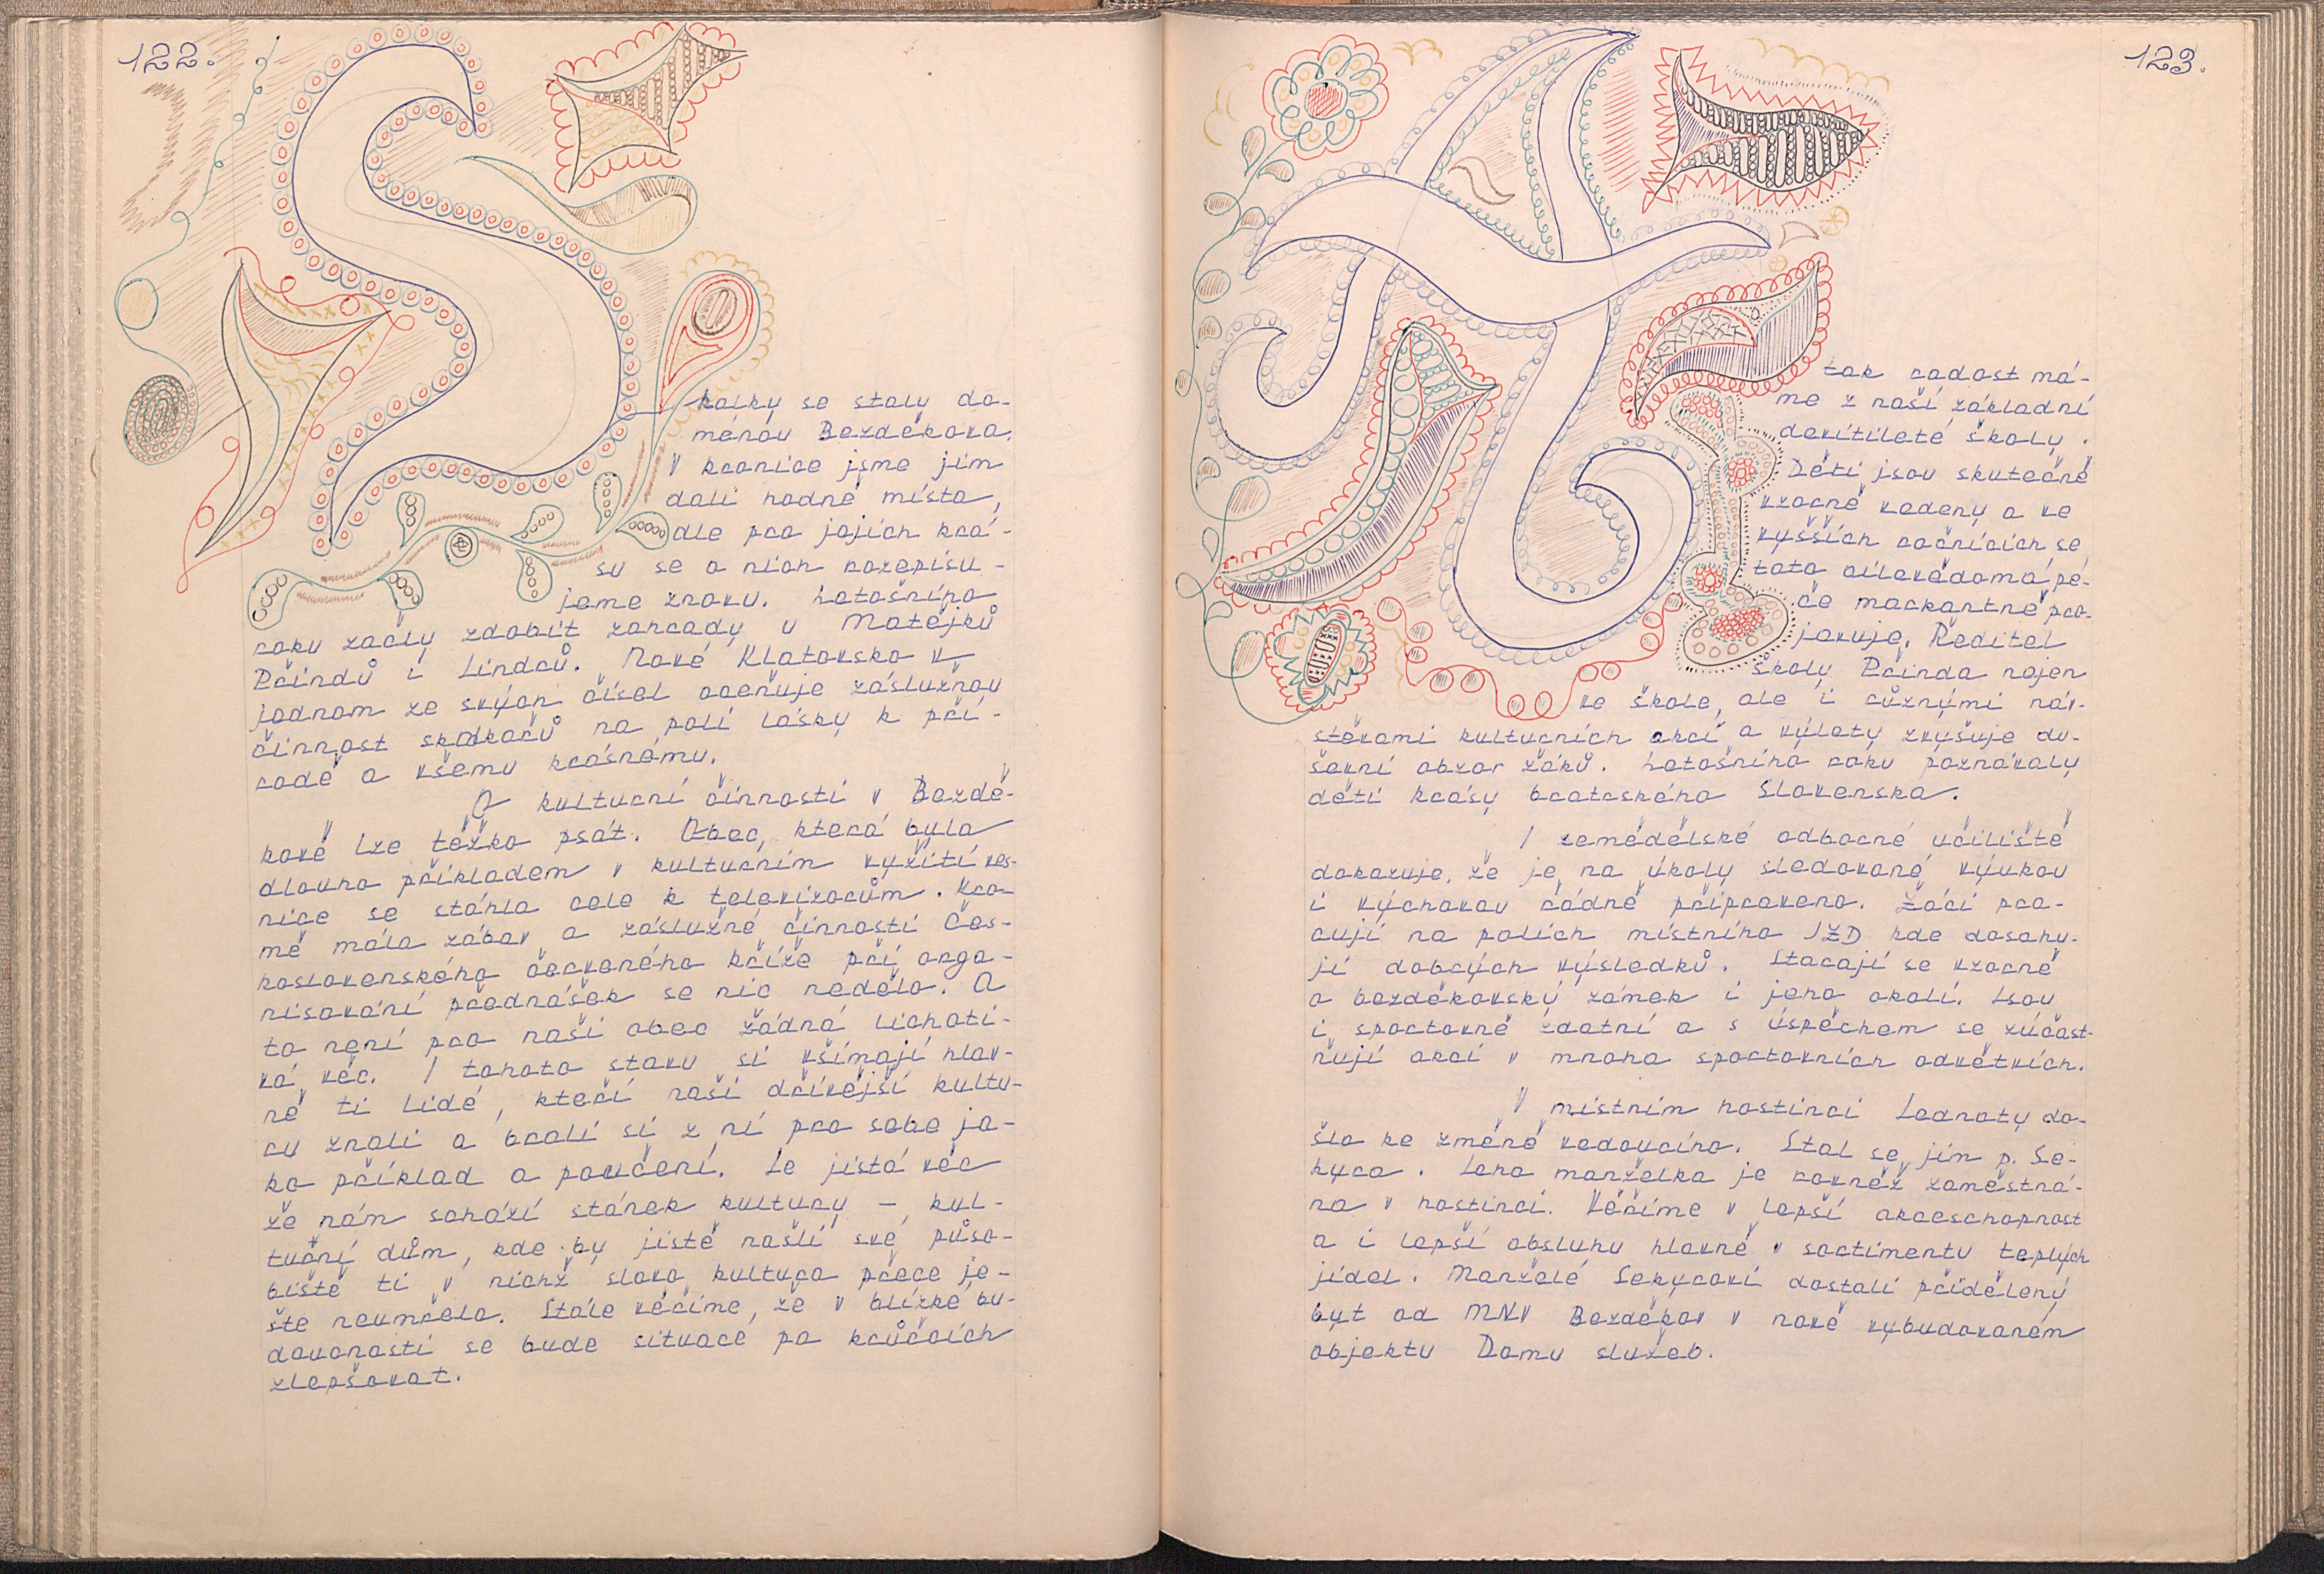 122.
Skalky se staly do-
ménou Bezděkova.
V kronice jsme jim
dali hodně místa,
ale pro jejich krá-
su se o nich rozepisu-
jeme znovu. Letošního
roku začly zdobit zahrady u Matějků
Přindů i Lindrů. Nové Klatovsko v
jednom ze svých čísel oceňuje záslužnou
činnost skalkařů na poli lásky k pří-
rodě a všemu krásnému.
O kulturní činnosti v Bezdě-
kově lze těžko psát. Obec, která byla
dlouho příkladem v kulturním vyžití ves-
nice se stáhla cele k televizorům. Kro-
mě mála zábav a záslužné činnosti Čes-
koslovenského červeného kříže při orga-
nisování přednášek se nic nedělo. A
to není pro naši obec žádná lichoti-
vá věc. I tohoto stavu si všímají hlav-
ně ti lidé, kteří naši dřívější kultu-
ru znali a brali si z ní pro sebe ja-
ko příklad a poučení. Je jistá věc
že nám schází stánek kultury – kul-
tuřní dům, kde by jistě našli své půso-
biště ti v nichž slovo kultura přece je-
ště neumřelo. Stále věříme, že v blízké bu-
doucnosti se bude situace po krůčcích
zlepšovat.
123.
tak radost má-
me z naší základní
devítileté školy.
Děti jsou skutečně
vzorně vedeny a ve
vyšších ročnících se
tato cílevědomá pé-
če markantně pro-
jevuje. Ředitel
školy Přinda nejen
ve škole, ale i různými náv-
štěvami kulturních akcí a výlety zvyšuje du-
ševní obzor žáků. Letošního roku poznávaly
děti krásy bratrského Slovenska.
I zemědělské odborné učiliště
dokazuje, že je na úkoly sledované výukou
i výchovou řádně připraveno. Žáci pra-
cují na polích místního JZD kde dosahu-
jí dobrých výsledků. Starají se vzorně
o bezděkovský zámek i jeho okolí. Jsou
i sportovně zdatní a s úspěchem se zúčast-
ňují akcí v mnoha sportovních odvětvích.
V místním hostinci Jednoty do-
šlo ke změně vedoucího. Stal se jím p. Se-
kyra. Jeho manželka je rovněž zaměstná-
na v hostinci. Věříme v lepší akceschopnost
a i lepší obsluhu hlavně v sortimentu teplých
jídel. Manželé Sekyrovi dostali přidělený
byt od MNV Bezděkov v nově vybudovaném
objektu Domu služeb.